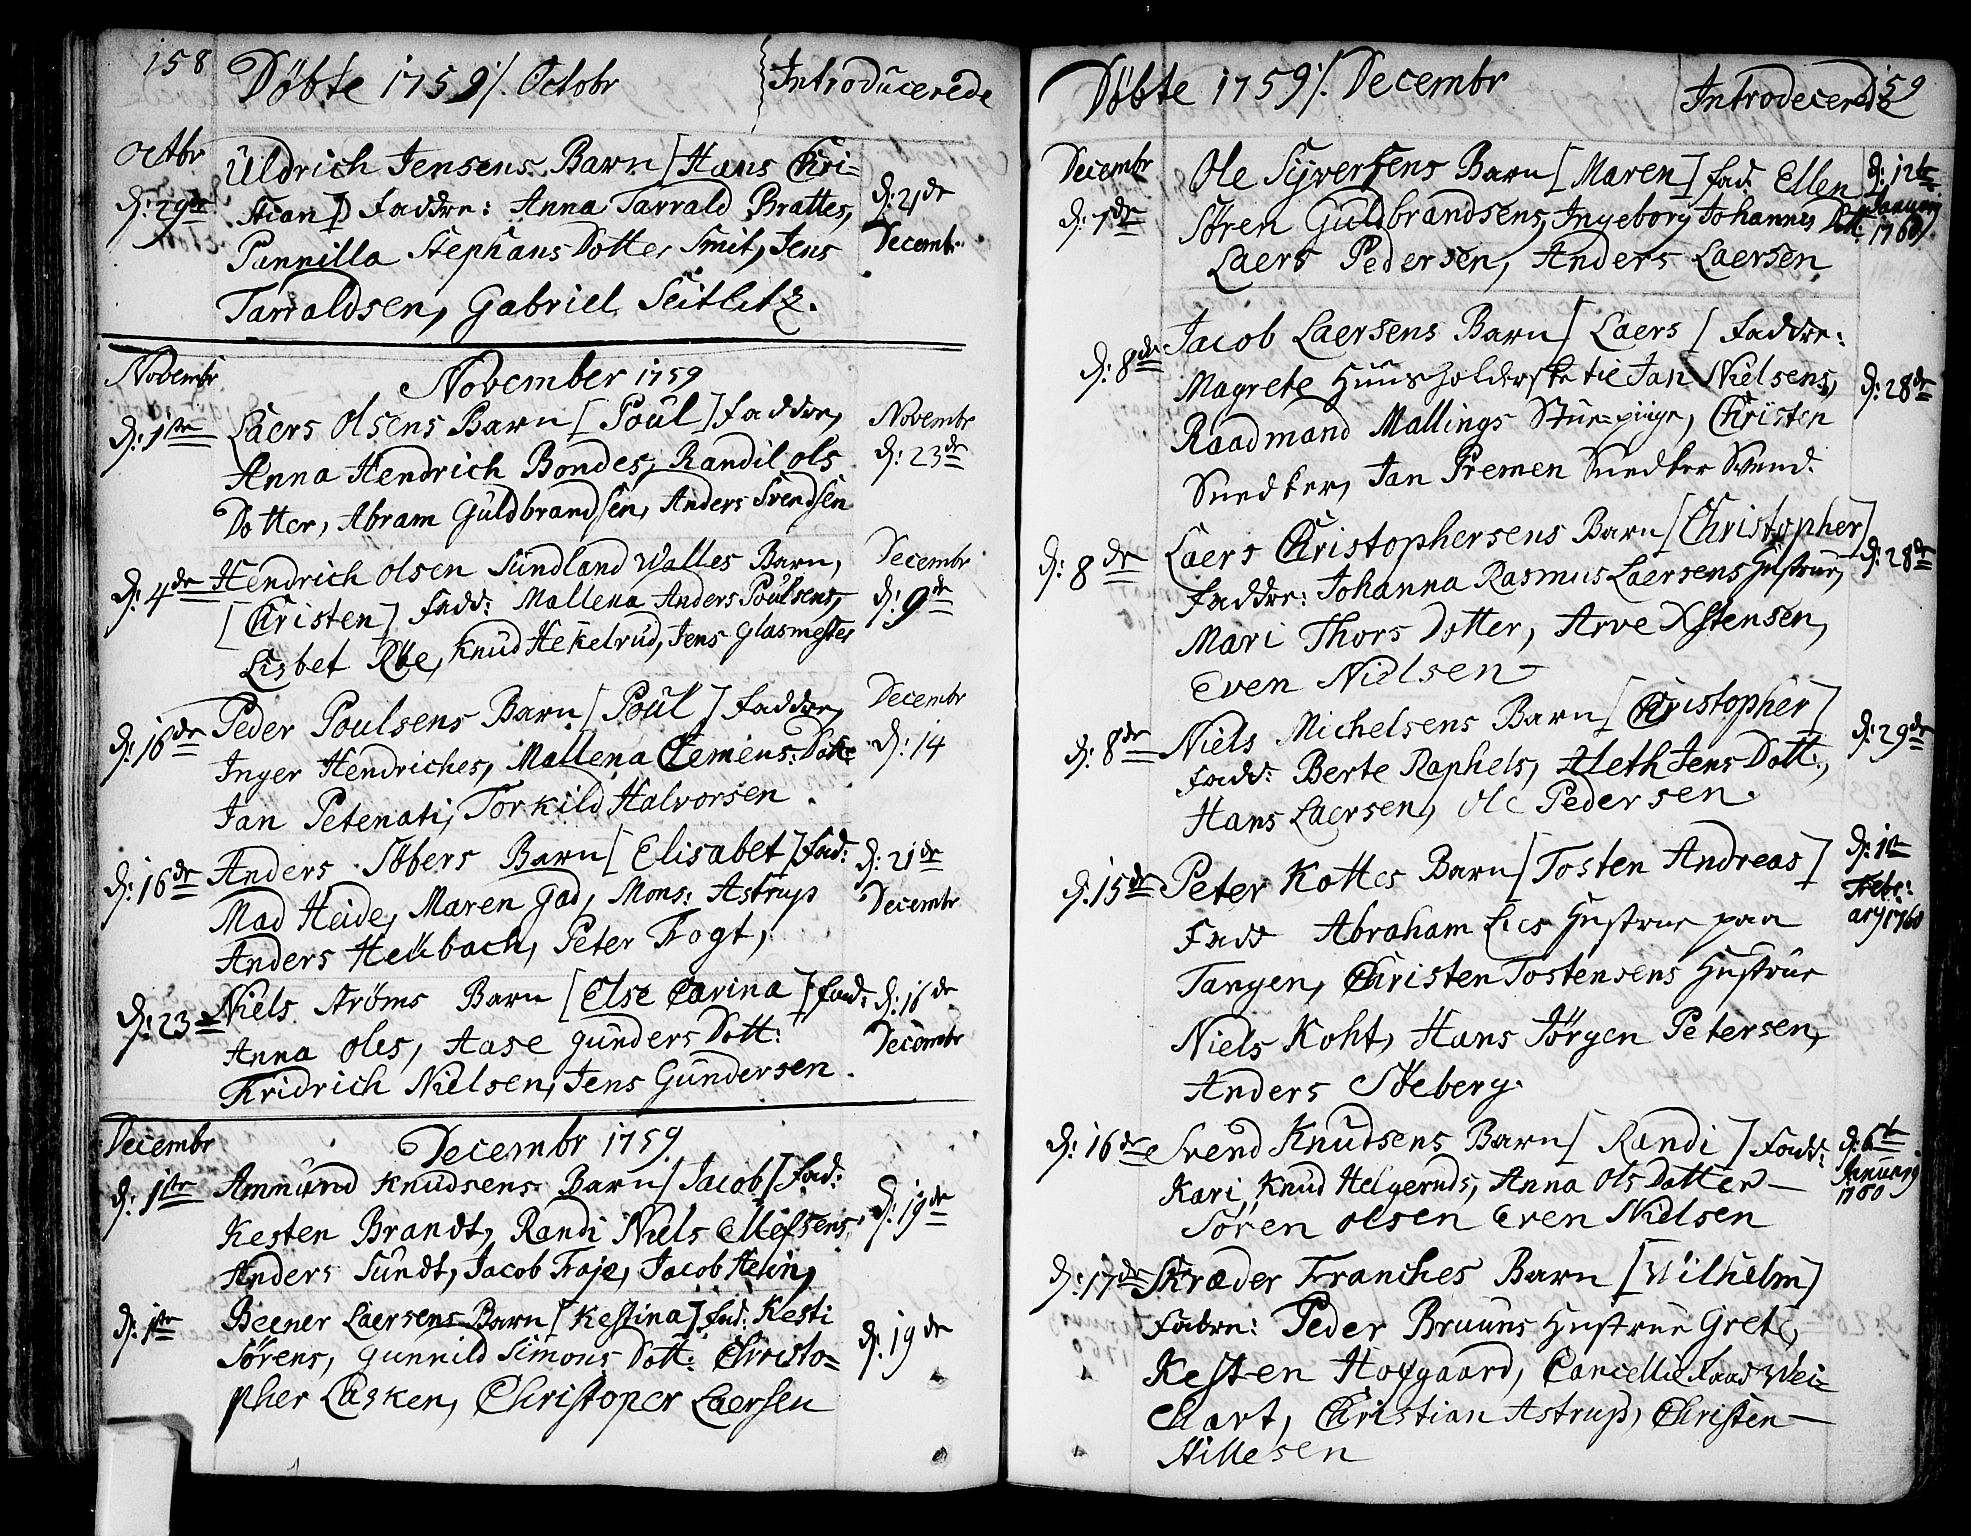 158 Döbte 1759 /. Octobr Introducerede
Octbr Uldrich Jensens Barn [Hans Chri-
d: 29de stian] Faddre: Anna Tarrald Brattes, d: 21de
Pernilla Stephans Dotter Smit, Jens Decembr
Tarraldsen, Gabriel Seitlitz.
Novembr November 1759
d: 1ste Laers Olsens Barn [Poul] Faddre, Novembr
Anna Hendrich Bondes, Randil ols d: 23de
Dotter, Abram Guldbrandsen, Anders Svendsen
Hendrich Olsen Sundland Walles Barn, Decembr
d: 4de [Christen] Fadd: Mallena Anders Poulsens, d: 9de
Lisbet Röe, Knud Hekelrud, Jens Glasmester
Peder Poulsens Barn [Poul] Faddre, Decembr
d: 16de Inger Hendriches, Mallena Clemens: Dott: d: 14
Jan Petenati, Torkild Halvorsen.
d: 16de Anders Söbers Barn [Elisabet] Fad: d: 21de
Mad Heide, Maren Gad, Mons: Astrup Decembr
Anders Hellbach, Peter Fogt,
d: 23de Niels Ströms Barn [Else Carina] Fad: d: 16de
Anna Oles, Aase Gunders Dott: Decembr
Fridrich Nielsen, Jens Gundersen.
Decembr Decembr 1759.
d: 1ste Ammund Knudsens Barn [Jacob] Fad:
Kesten Brandt, Randi Niels Ellefsens, d: 19de
Anders Sundt, Jacob Traje, Jacob Helin,
d: 1ste Beener Laersens Barn [Kestina] Fad: Kesti
Sörens, Gunnild Simons Dott: Christo- d: 19de
pher Lasken, Christoper Laersen
Döbte 1759 /. Decembr Introdecerede 159
Decembr Ole Syversens Barn [Maren] Fad: Ellen d: 12te
d: 7de Sören Guldbrandsens, Ingeborg Johannes Dott. January 1760
Laers Pedersen, Anders Laersen,
Jacob Laersens Barn [Laers] Faddre:
d: 8de Magrete Huusholderske til Jan Nielsens, d: 28de
Raadmand Mallings Stue-piige, Christen
Snedker, Jan Premen Snedker Svend.
d: 8de Laers Christophersens Barn [Christopher] d: 28de
Faddre: Johanna Rasmus Laersens Hustrue,
Mari Thors Dotter, Arve Xstensen,
Even Nielsen
d: 8de Niels Michelsens Barn [Christopher] d: 29de
Fadd: Berte Raphels, Aleth Jens Dott:,
Hans Laersen, Ole Pedersen.
d: 15de Peter Kottes Barn [Tosten Andreas] d: 1te
Fadd Abraham Lies Hustrue paa Febr:ary 1760
Tangen, Christen Tostensens Hustrue
Niels Koht, Hans Jörgen Petersen,
Anders Söeberg.
d: 16de Svend Knudsens Barn [Randi] Fadd: d: 6te
Kari, Knud Helgeruds, Anna Ols Datter January 1760
Sören Olsen Even Nielsen
d: 17de Skræder Franches Barn [Wilhelm]
Fadre: Peder Bruuns Hustrue Grete,
Kesten Hofgaard, Cancellie Raad Wei-
chart, Christian Astrup, Christen
Hillesen